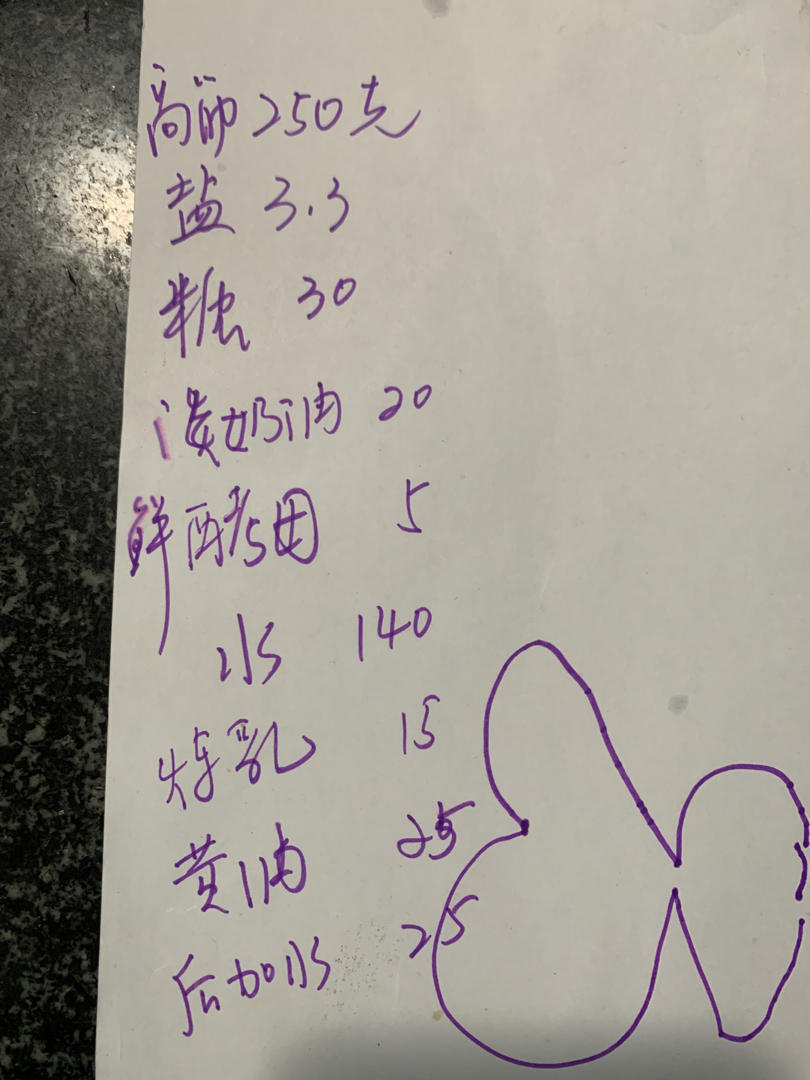 高筋250克
盐 3.3
糖 30
淡奶油 20
鲜酵母 5
水 140
炼乳 15
黄油 25
后加水 25